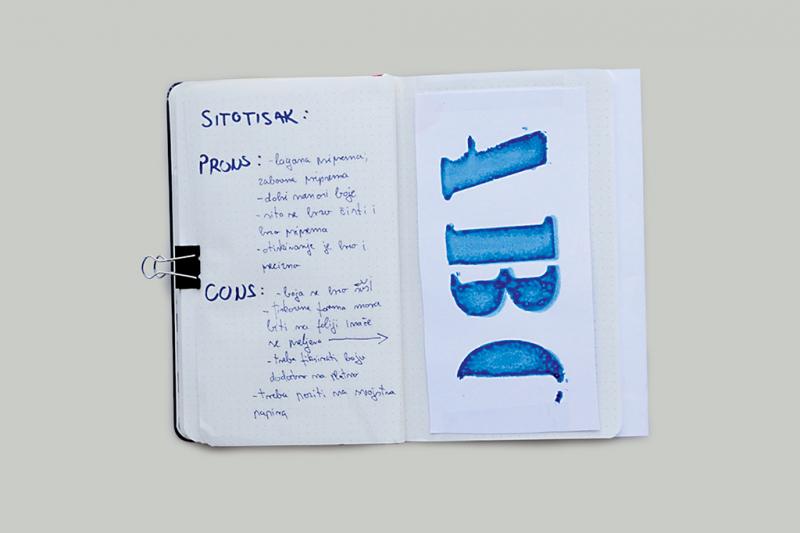 SITOTISAK:
PRONS: - lagana priprema,
zabavna priprema
- dobri nanosi boje
- sito se brzo čisti i
brza priprema
- otiskivanje je brzo i
precizno
CONS: - boja se brzo suši
- tiskovna forma mora
biti na foliji inače
se
- treba fiksirati boju
dodatno na platno
- treba paziti na svojstva
papira
ABC